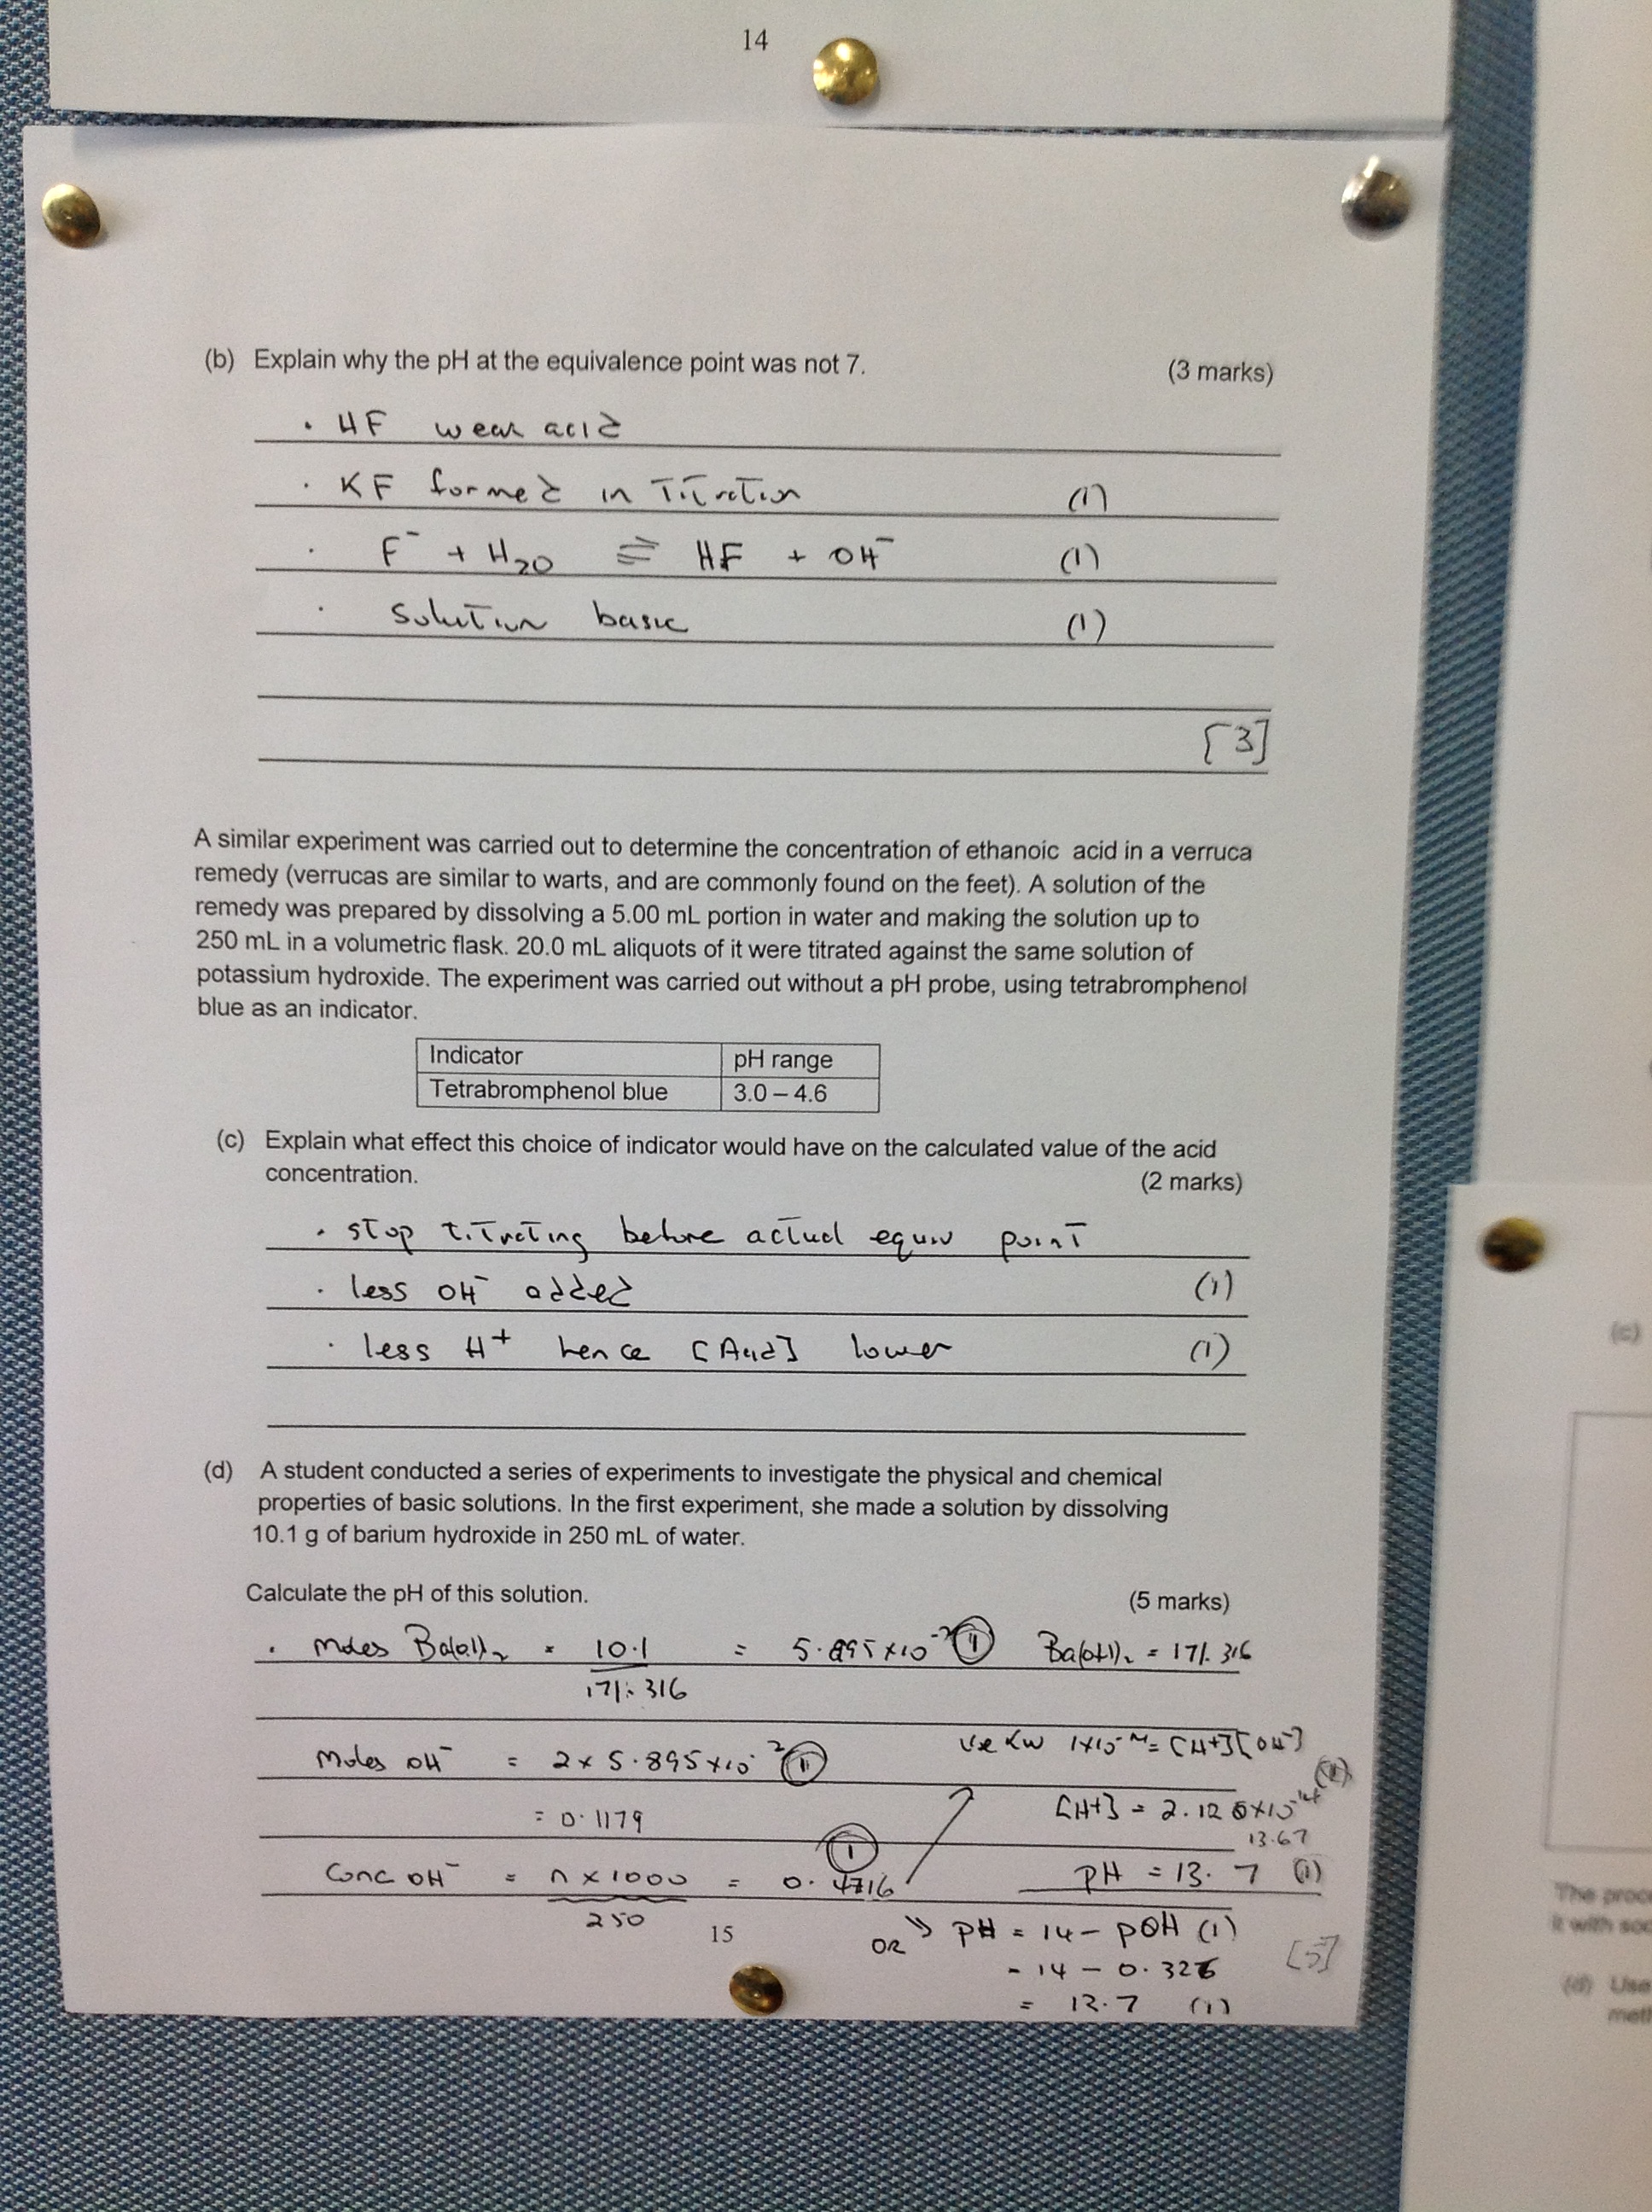 14
(b) Explain why the pH at the equivalence point was not 7. (3 marks)
· HF weak acid
· KF formed in Titration (1)
· F⁻ + H₂O ⇌ HF + OH⁻ (1)
· Solution basic (1)
[3]
A similar experiment was carried out to determine the concentration of ethanoic acid in a verruca
remedy (verrucas are similar to warts, and are commonly found on the feet). A solution of the
remedy was prepared by dissolving a 5.00 mL portion in water and making the solution up to
250 mL in a volumetric flask. 20.0 mL aliquots of it were titrated against the same solution of
potassium hydroxide. The experiment was carried out without a pH probe, using tetrabromphenol
blue as an indicator.
Indicator pH range
Tetrabromphenol blue 3.0 – 4.6
(c) Explain what effect this choice of indicator would have on the calculated value of the acid
concentration. (2 marks)
· stop titrating before actual equiv point
· less OH⁻ added (1)
· less H⁺ hence [Acid] lower (1)
(d) A student conducted a series of experiments to investigate the physical and chemical
properties of basic solutions. In the first experiment, she made a solution by dissolving
10.1 g of barium hydroxide in 250 mL of water.
Calculate the pH of this solution. (5 marks)
· moles Ba(OH)₂ = 10.1 = 5.895×10⁻² (1) Ba(OH)₂ = 171.316
171.316
use Kw 1×10⁻¹⁴ = [H+][OH⁻]
Moles OH⁻ = 2 × 5.895×10⁻² (1) (1)
= 0.1179 [H+] = 2.120×10⁻¹⁴
13.67
Conc OH⁻ = n × 1000 = 0.4716 (1) pH = 13.7 (1)
250
15
OR pH = 14 – pOH (1)
[5]
= 14 – 0.326
= 13.7 (1)
(c)
The proce
it with soc
(d) Use
meth